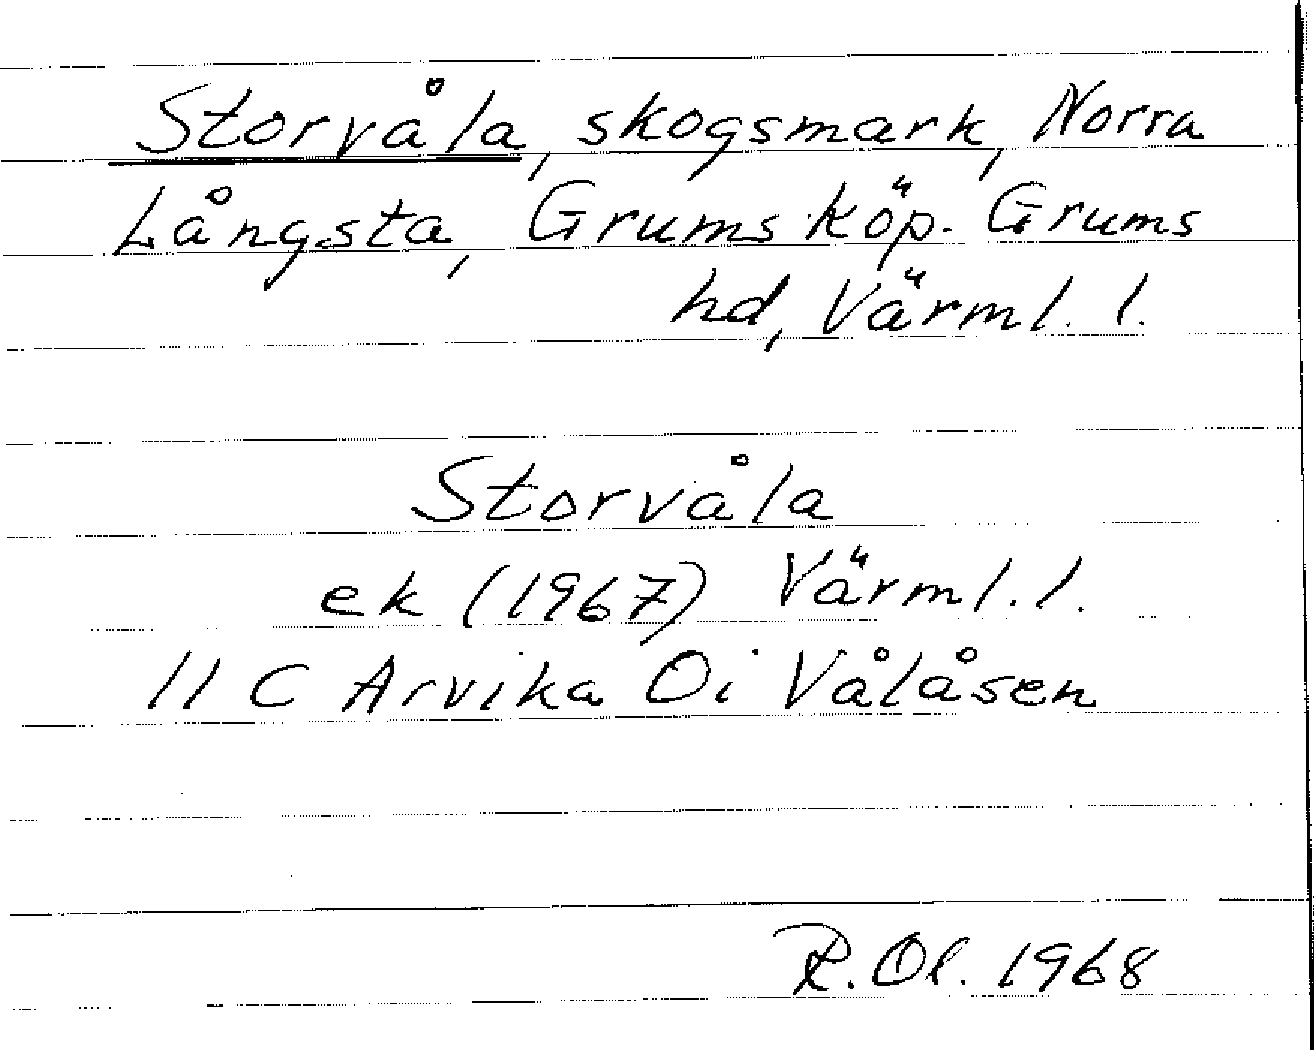 Storvåla, skogsmark, Norra
Långsta, Grums köp. Grums
hd, Värml. l.
Storvåla
ek (1967) Värml. l.
11 C Arvika Öi Vålåsen
R. Ol. 1968